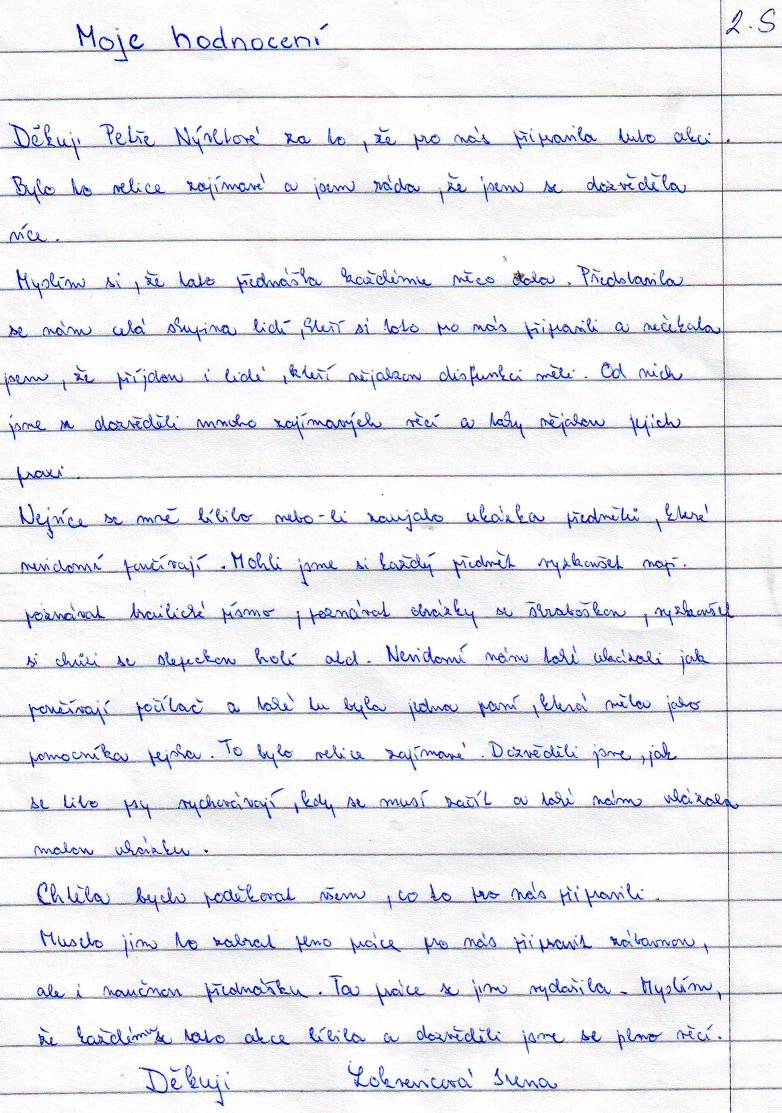 Moje hodnocení
2.S
Děkuji Petře Nývltové za to, že pro nás připravila tuto akci.
Bylo to velice zajímavé a jsem ráda, že jsem se dozvěděla
více.
Myslím si, že tato přednáška každému něco dala. Představila
se nám celá skupina lidí, kteří si toto pro nás připravili a nečekala
jsem, že příjdou i lidé, kteří nějakou disfunkci měli. Od nich
jsme se dozvěděli mnoho zajímavých věcí a taky nějakou jejich
praxi.
Nejvíce se mně líbilo nebo-li zaujalo ukázka předmětů, které
nevidomí používají. Mohli jsme si každý předmět vyzkoušet např.
poznávat brailické písmo, poznávat obrázky se škraboškou, vyzkoušet
si chůzi se slepeckou holí atd. Nevidomí nám také ukázali jak
používají počítač a také tu byla jedna paní, která měla jako
pomocníka pejska. To bylo velice zajímavé. Dozvěděli jsme, jak
se tito psy vychovávají, kdy se musí začít a také nám ukázala
malou ukázku.
Chtěla bych poděkovat všem, co to pro nás připravili.
Muselo jim to zabrat plno práce pro nás připravit zábavnou,
ale i naučnou přednášku. Ta práce se jim vydařila. Myslím,
že každému se tato akce líbila a dozvěděli jsme se plno věcí.
Děkuji Irena